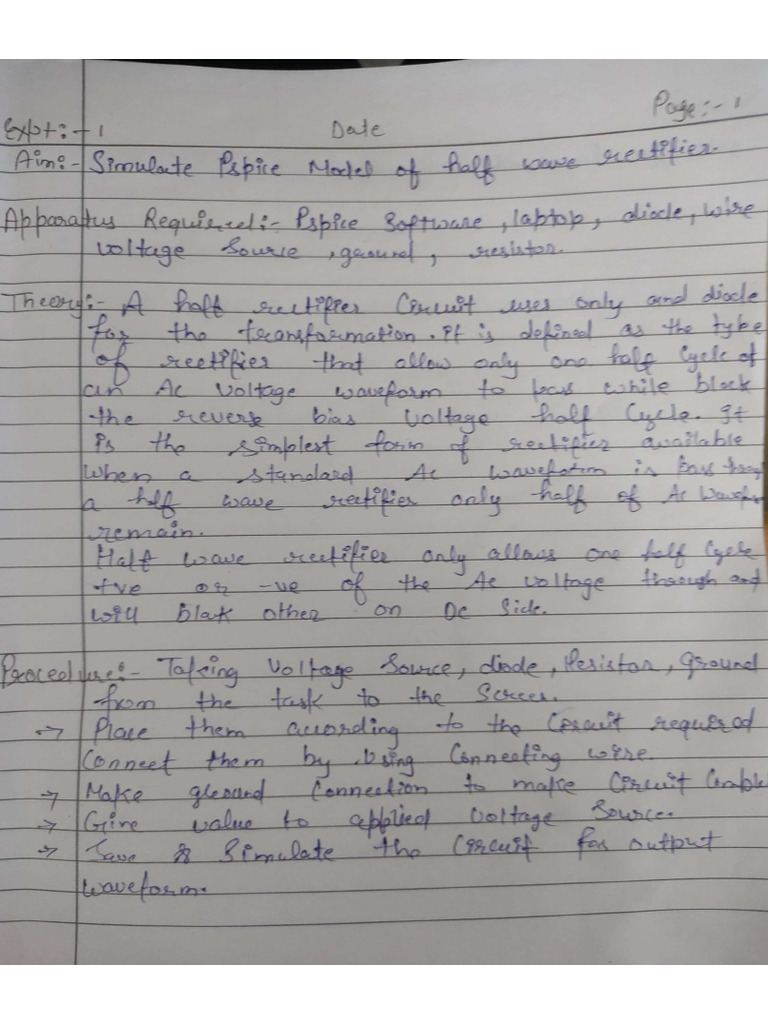 Page:- 1
Expt:- 1 Date
Aim:- Simulate Pspice Model of half wave rectifier.
Apparatus Required:- Pspice Software, laptop, diode, wire
voltage source, ground, resistor.
Theory:- A half rectifier Circuit uses only and diode
for the transformation. it is defined as the type
of rectifier that allow only one half Cycle of
an AC voltage waveform to pass while block
the reverse bias voltage half Cycle. It
is the simplest form of rectifier available
When a standard AC waveform is pass
a half wave rectifier only half of AC
remain.
Half wave rectifier only allows one half Cycle
+ve or -ve of the AC voltage through and
will blak other on DC side.
Procedure:- Taking voltage source, diode, Resistor, ground
from the task to the Screen.
→ Place them according to the Circuit required
Connect them by using Connecting wire.
→ Make ground Connection to make Circuit
→ Give value to applied voltage Source.
→ Save & Simulate the Circuit for output
waveform.